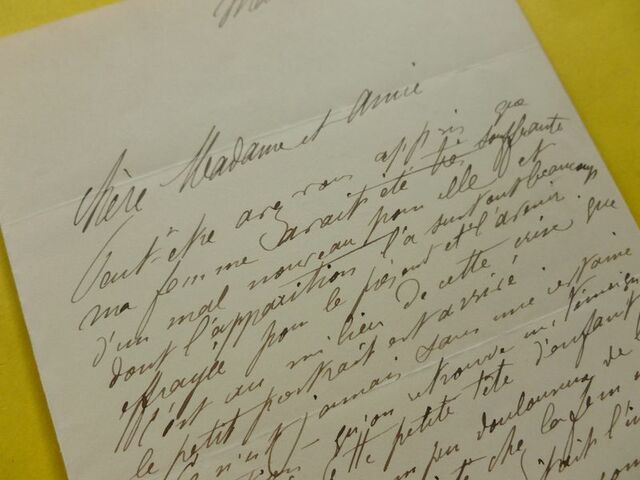 Chère Madame et Amie
Peut-être avez vous appris que
ma femme avait été très souffrante
d'un mal nouveau pour elle et
dont l'apparition l'a surtout beaucoup
effrayée pour le présent et l'avenir.
C'est au milieu de cette crise que
le petit portrait est arrivé.
Ce n'est jamais sans une certaine
qu'on retrouve un
cette petite tête d'enfant
un peu douloureux de
chez la femme